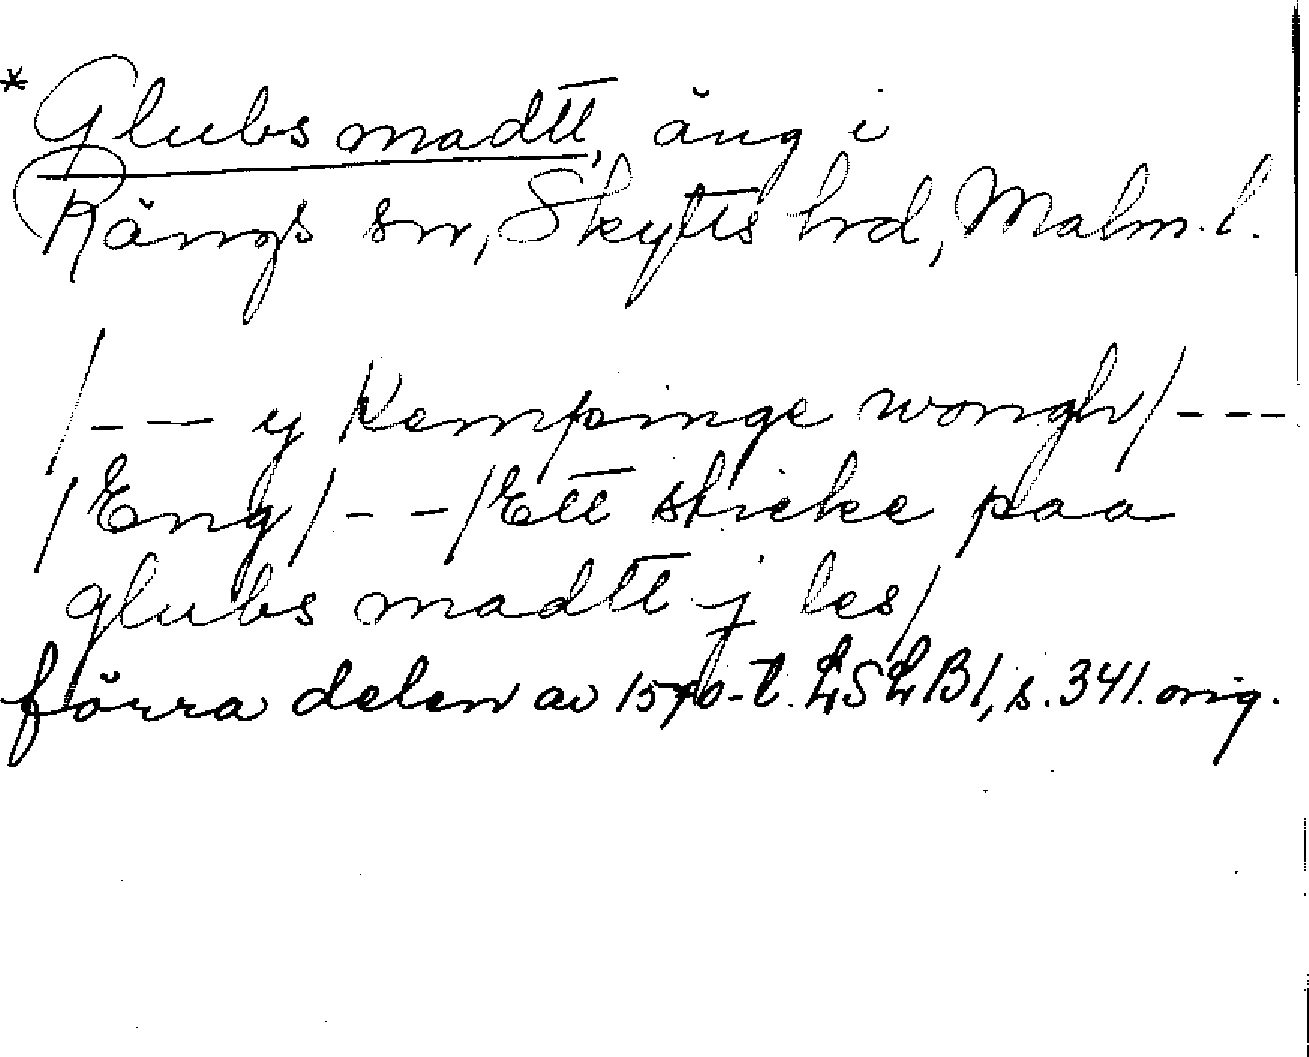 * Glubs madtt, äng i
Rängs sn, Skytts hrd, Malm. l.
/--- y Kempinge wongh/---
/Eng/---/Ett sticke paa
glubs madtt j les/
förra delen av 1570-t. LSLB1, s. 341. orig.